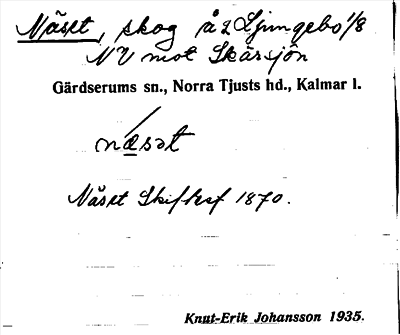 Näset, skog å 2 Ljungebo 1/8
NV mot Skärsjön
Gärdserums sn., Norra Tjusts hd., Kalmar l.
næsət
Näset Skifteskf 1870.
Knut-Erik Johansson 1935.